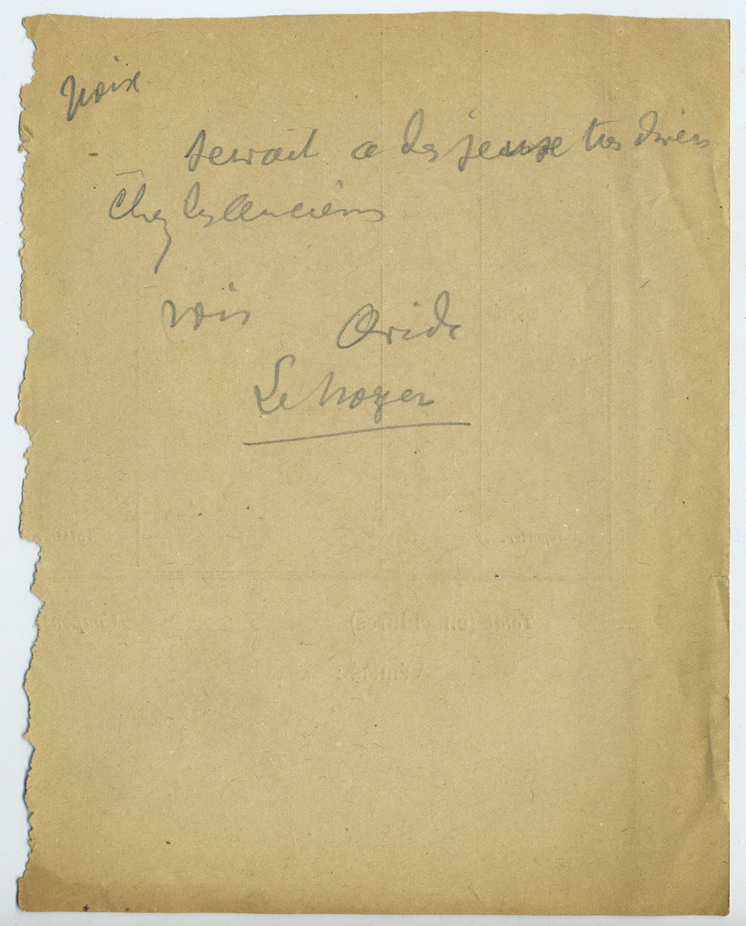 Noix
servait a des jeux tres divers
Chez les Anciens
voir Ovide
Le Noyer